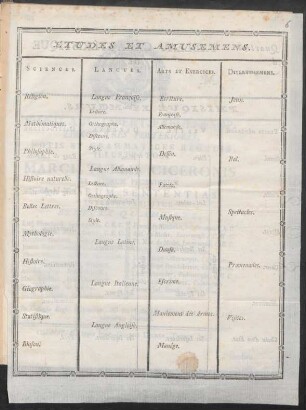 6
ETUDES ET AMUSEMENS.
SCIENCES.
Religion.
Mathématiques.
Philosophie.
Histoire naturelle.
Belles Lettres.
Mythologie.
Histoire.
Géographie.
Statistique.
Blason.
LANGUES.
Langue Françoise.
Lecture.
Orthographe.
Discours.
Style.
Langue Allemande.
Lecture.
Orthographe.
Discours.
Style.
Langue Latine.
Langue Italienne.
Langue Angloise.
ARTS ET EXERCICES.
Ecriture.
Françoise.
Allemande.
Dessin.
Musique.
Danse.
Escrime.
Maniement des Armes.
Manége.
DIVERTISSEMENS.
Jeux.
Bal.
Spectacles.
Promenades.
Visites.